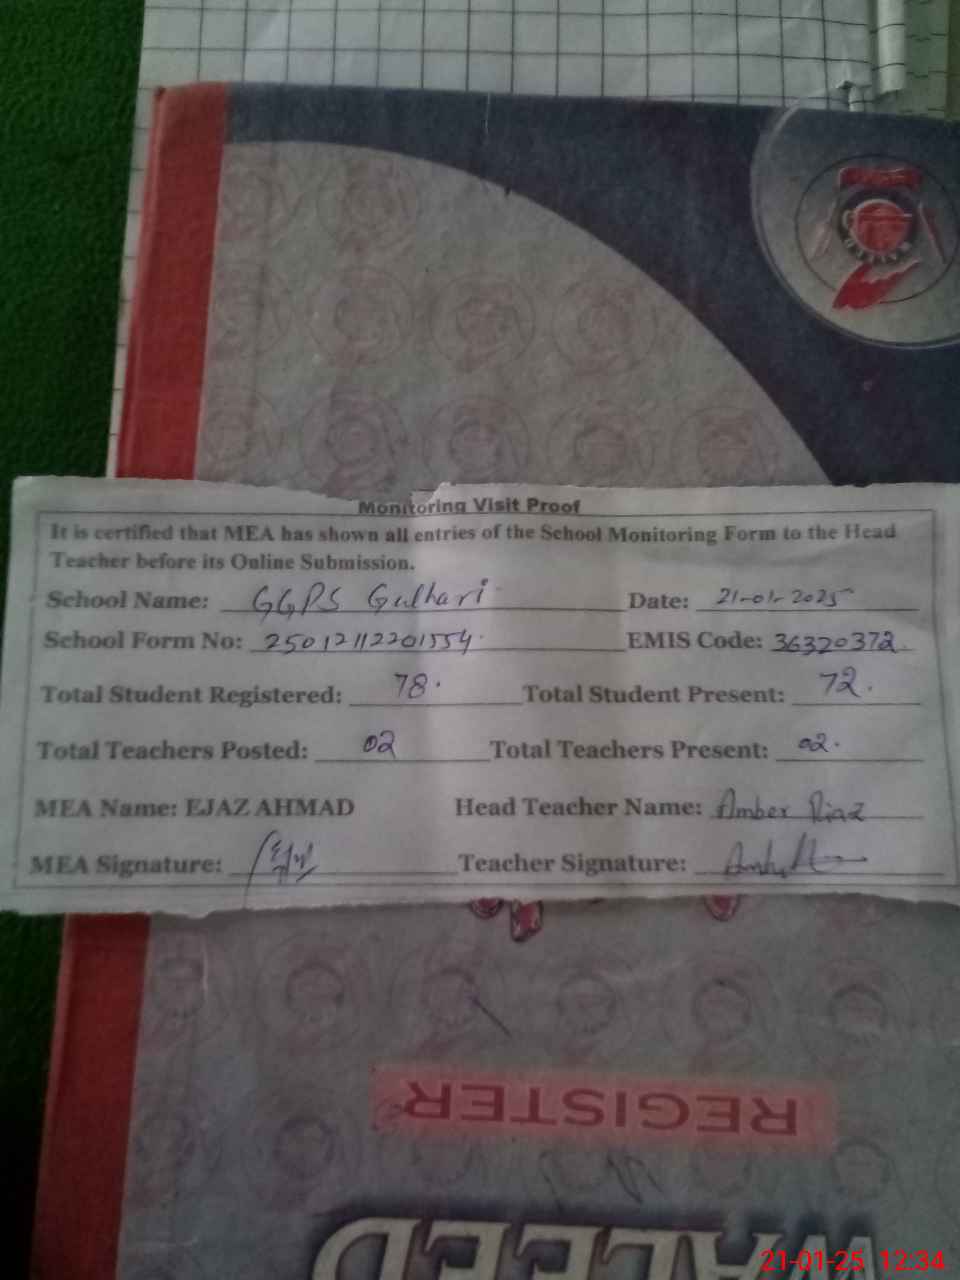 Monitoring Visit Proof
It is certified that MEA has shown all entries of the School Monitoring Form to the Head
Teacher before its Online Submission.
School Name: GGPS Gulhari Date: 21-01-2025
School Form No: 25012112201554 EMIS Code: 36320372
Total Student Registered: 78. Total Student Present: 72.
Total Teachers Posted: 02 Total Teachers Present: 02.
MEA Name: EJAZ AHMAD Head Teacher Name: Amber Riaz
MEA Signature: Teacher Signature:
REGISTER
WALEED
21-01-25 12:34